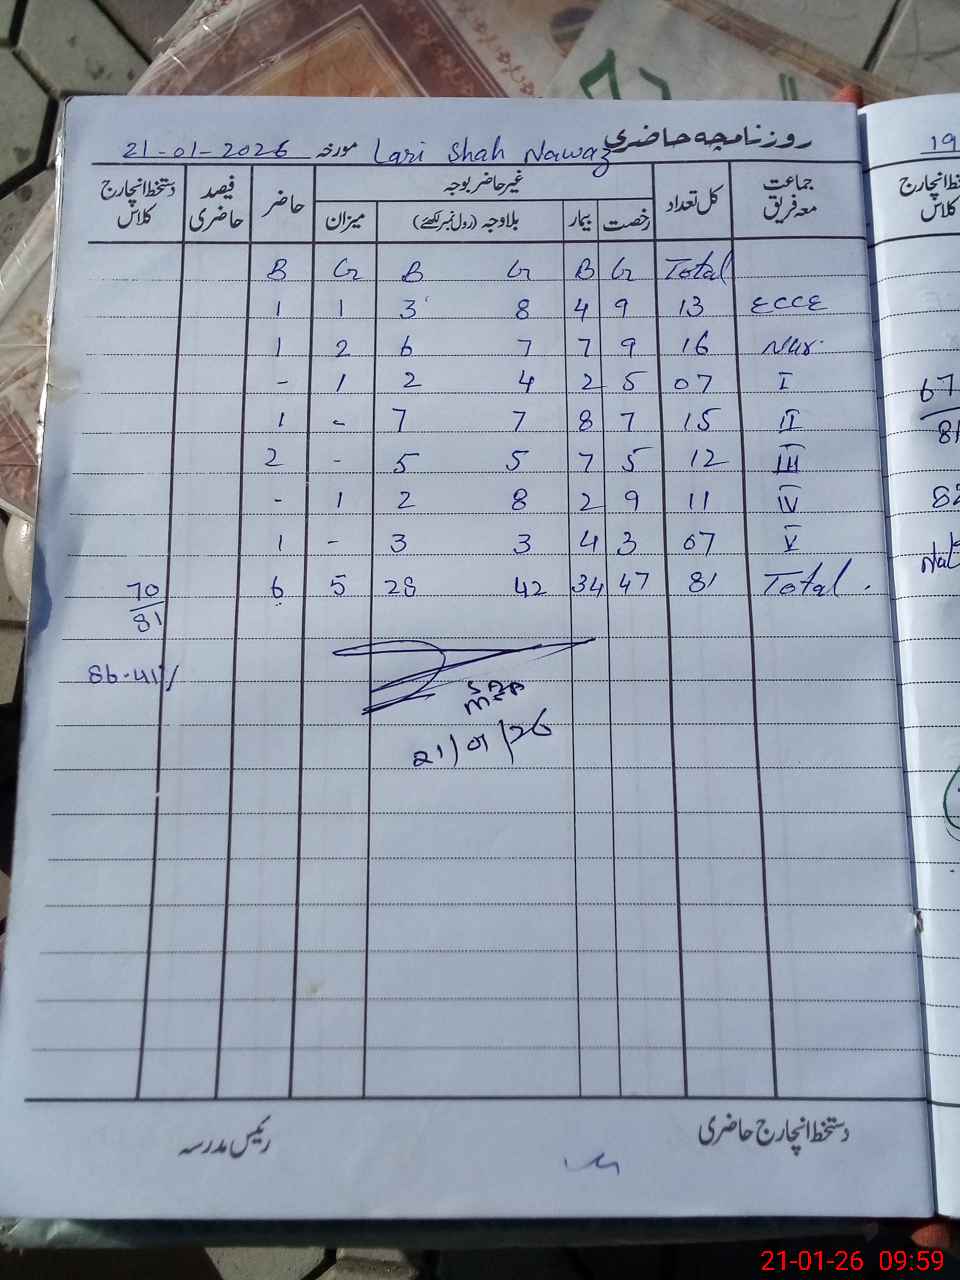 روزنامچہ حاضری Lari Shah Nawaz مورخہ 21-01-2026
جماعت معہ فریق کل تعداد غیر حاضر بوجہ حاضر فیصد حاضری دستخط انچارج کلاس
رخصت بیمار بلاوجہ (رول نمبر لکھئے) میزان
B G B G B G Total
1 1 3 8 4 9 13 ECCE
1 2 6 7 7 9 16 Nur.
- 1 2 4 2 5 07 I
1 - 7 7 8 7 15 II
2 - 5 5 7 5 12 III
- 1 2 8 2 9 11 IV
1 - 3 3 4 3 07 V
70/81 6 5 28 42 34 47 81 Total.
86.41%
21/01/26
دستخط انچارج حاضری رئیس مدرسہ
19
دستخط انچارج کلاس
67
81
82
21-01-26 09:59